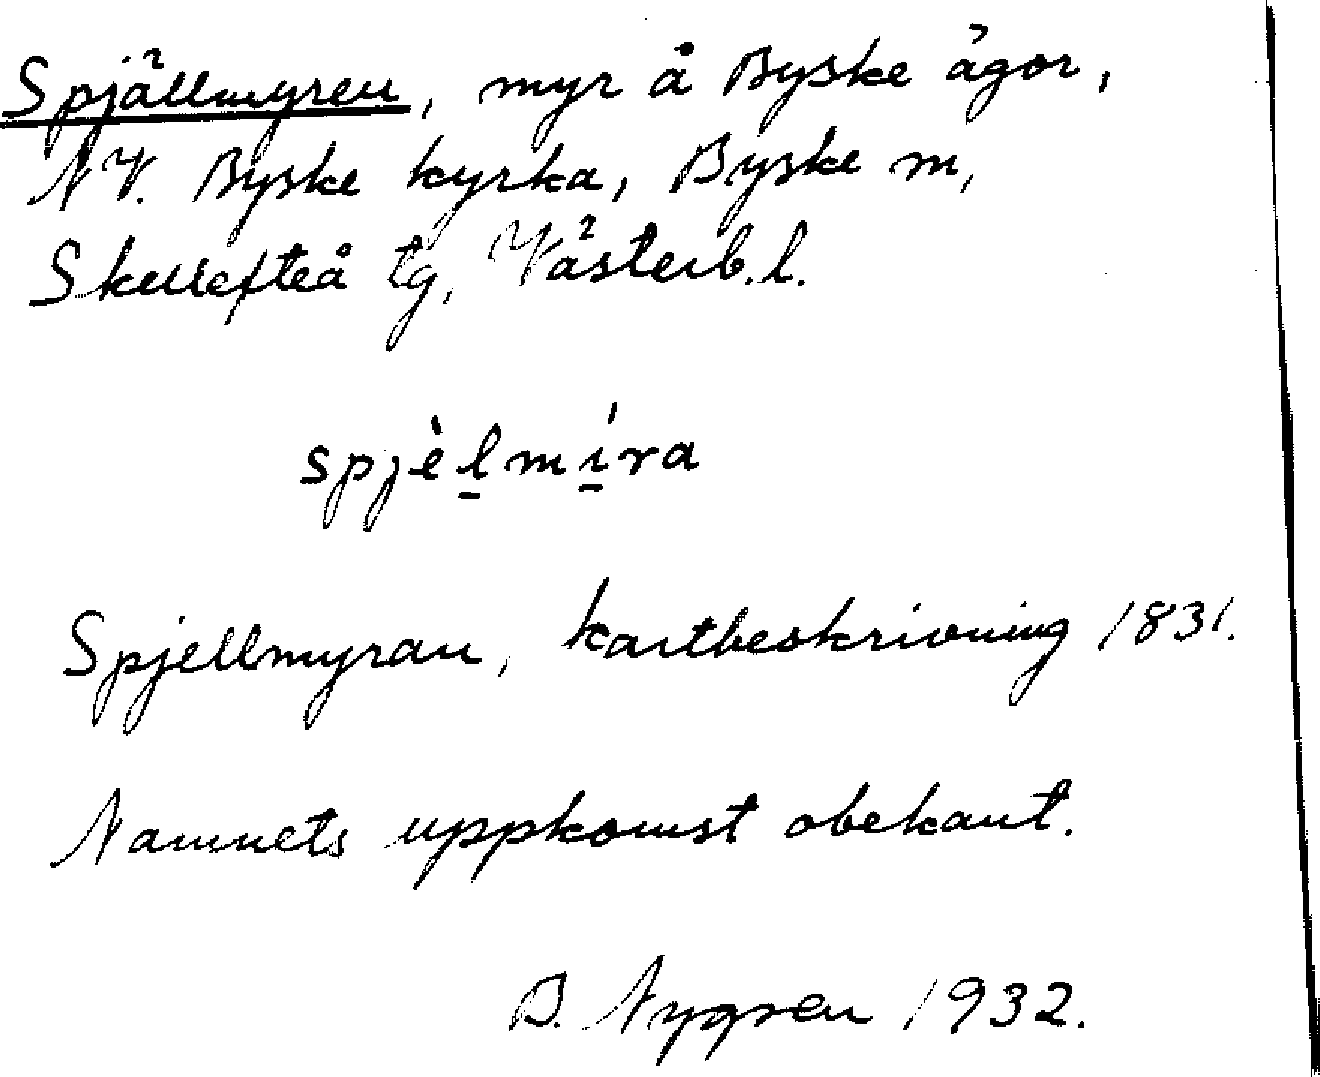 Spjällmyren, myr å Byske ägor,
NV. Byske kyrka, Byske m,
Skellefteå tg, Västerb. l.
spjèl̲mí̲ra
Spjellmyran, kartbeskrivning 1831.
Namnets uppkomst obekant.
B. Nygren 1932.